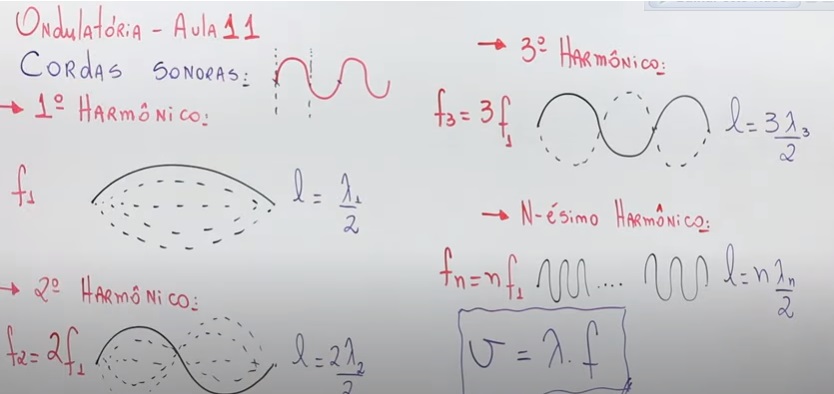 Ondulatória - Aula 11
Cordas sonoras:
→ 1º Harmônico:
f₁
l = λ₁/2
→ 2º Harmônico:
f₂ = 2f₁
l = 2λ₂/2
→ 3º Harmônico:
f₃ = 3f₁
l = 3λ₃/2
→ N-ésimo Harmônico:
fn = nf₁
....
l = nλn/2
v = λ.f